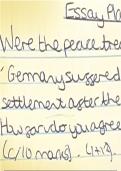 Essay Pla
Were the peace trea
'Germany suffered
settlement after the
How far do you agree
(c/10 marks). (1+1).